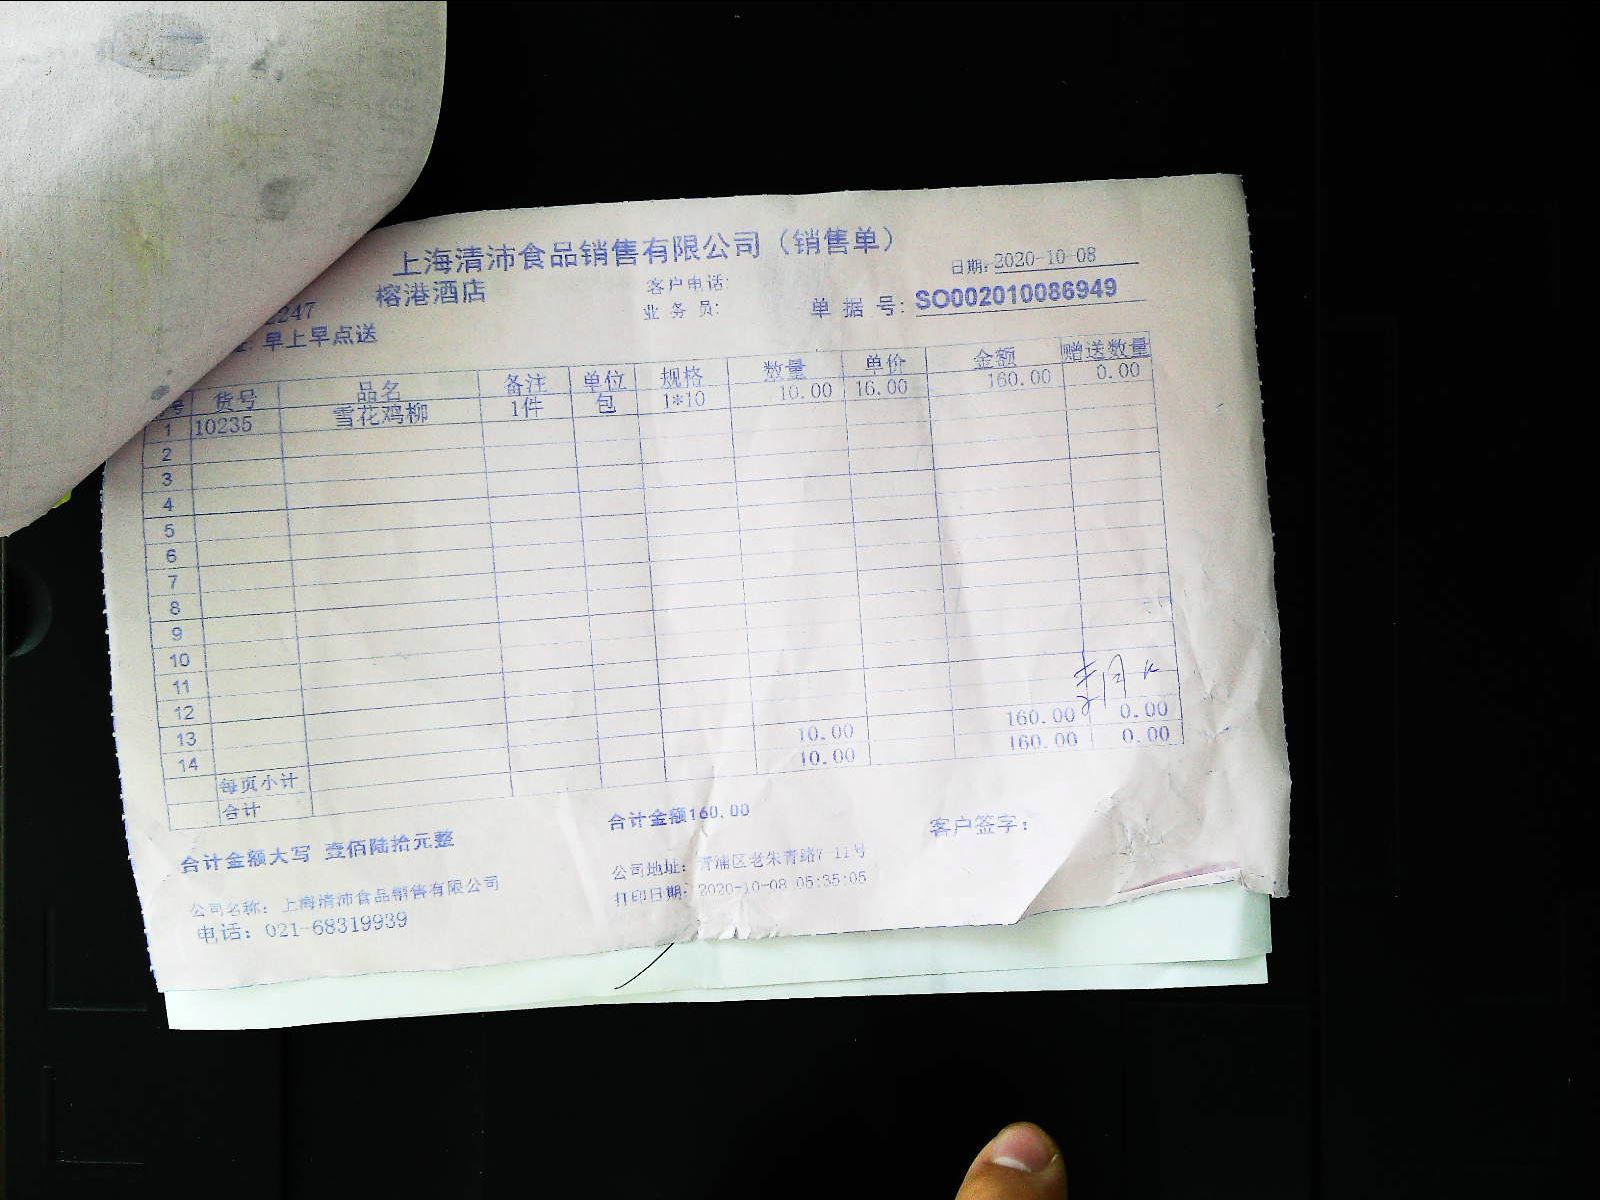 上海清沛食品销售有限公司（销售单）
榕港酒店 客户电话: 日期:2020-10-08
2247 业务员: 单据号: SO002010086949
早上早点送
号 货号 品名 备注 单位 规格 数量 单价 金额 赠送数量
1 10235 雪花鸡柳 1件 包 1*10 10.00 16.00 160.00 0.00
2
3
4
5
6
7
8
9
10
11
12
13
14
每页小计 10.00 160.00 0.00
合计 10.00 160.00 0.00
合计金额大写 壹佰陆拾元整 合计金额160.00 客户签字：
公司名称: 上海清沛食品销售有限公司 公司地址: 青浦区老朱青路7-11号
电话: 021-68319939 打印日期: 2020-10-08 05:35:05